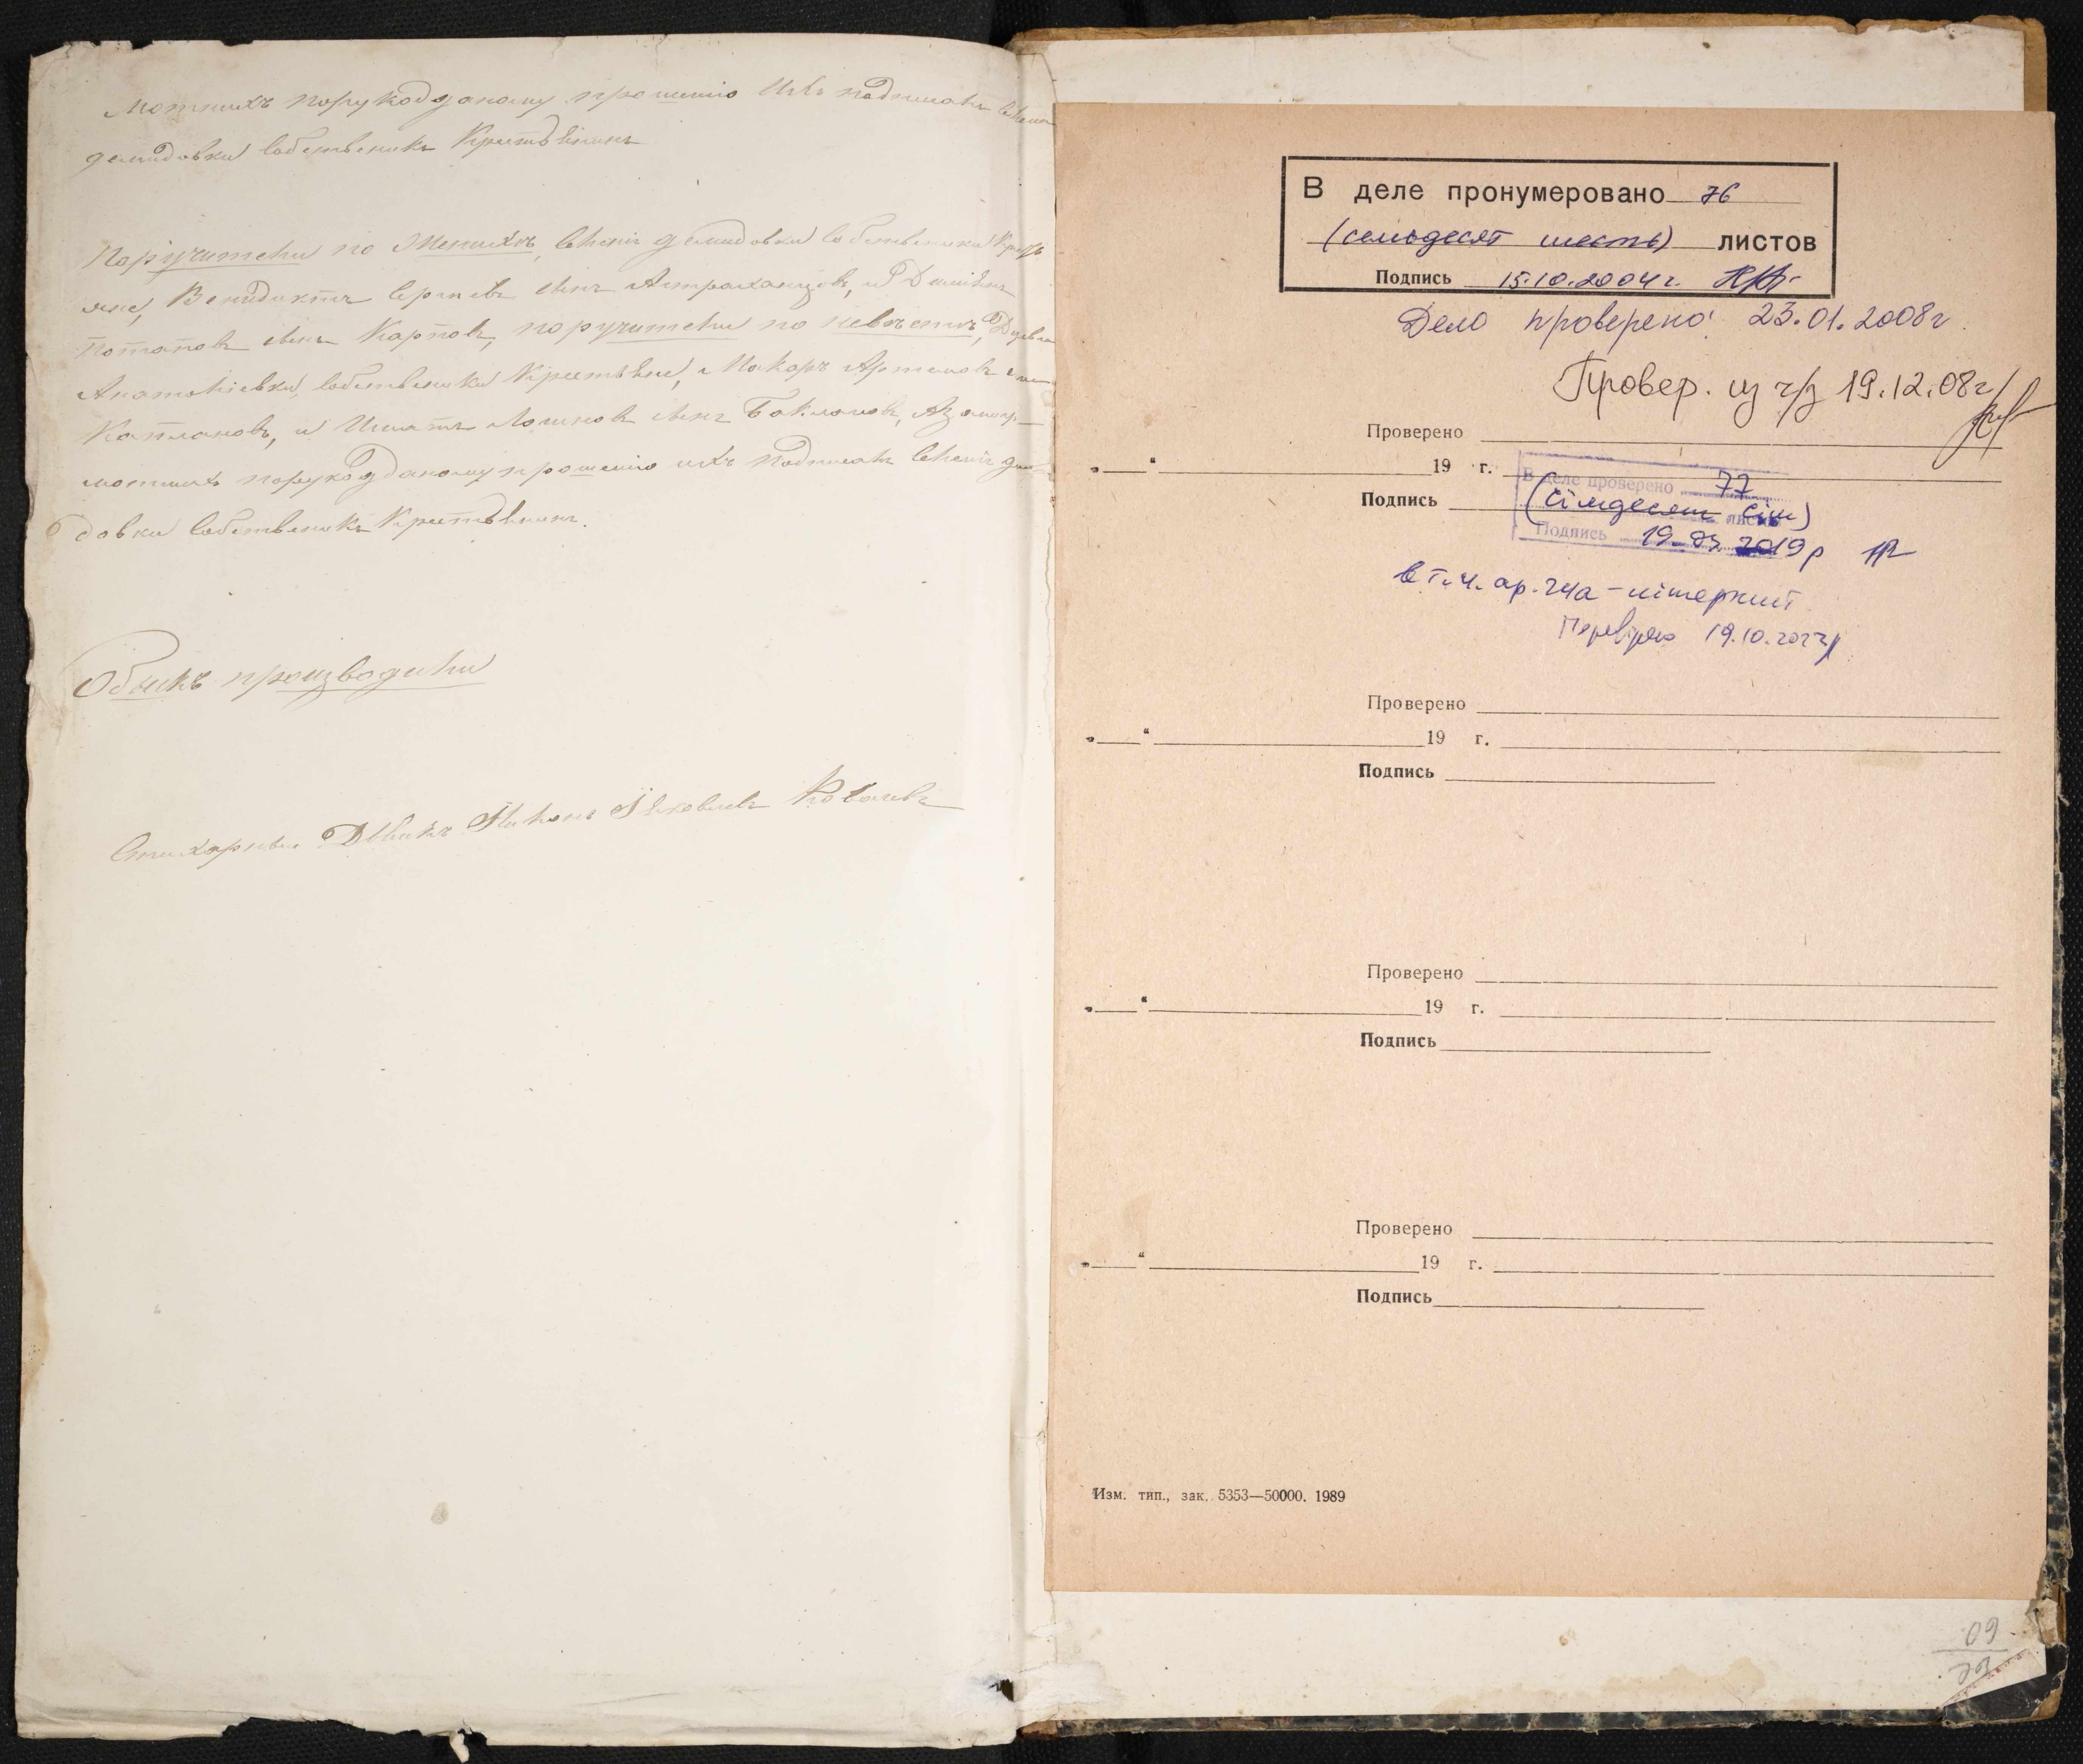 мотныхъ порукодданому прошенію ихъ подписалъ
демидовки собственикъ Крестьянинъ
Поручители по Женихѣ, Селенія демидовки собственики
яне, Венидиктъ Сергѣевъ сынъ Астраханцовъ, и
Потаповъ сынъ Карповъ, поручители по невѣстѣ,
Анатоліевки, собственики Крестьяне, Макаръ Артемовъ
Каплановъ, и Игнатъ Логиновъ сынъ Баклановъ,
мотныхъ порукодданому прошенію ихъ подписалъ Селенія
довки собственикъ Крестьянинъ.
Обыскъ производили
Стихарный Дьячекъ Никонъ Яковлевъ Ковалевъ
В деле пронумеровано 76
(семьдесят шесть) листов
Подпись 15.10.2004г.
Дело проверено 23.01.2008г
Провер. из ч/з 19.12.08г
Проверено
„ “ 19 г.
В деле проверено 77
Подпись (сімдесят сім)
Подпись 19. 2019р
в т.ч. ар. 24а
Перевірено 19.10.
Проверено
„ “ 19 г.
Подпись
Проверено
„ “ 19 г.
Подпись
Проверено
„ “ 19 г.
Подпись
Изм. тип., зак. 5353—50000. 1989